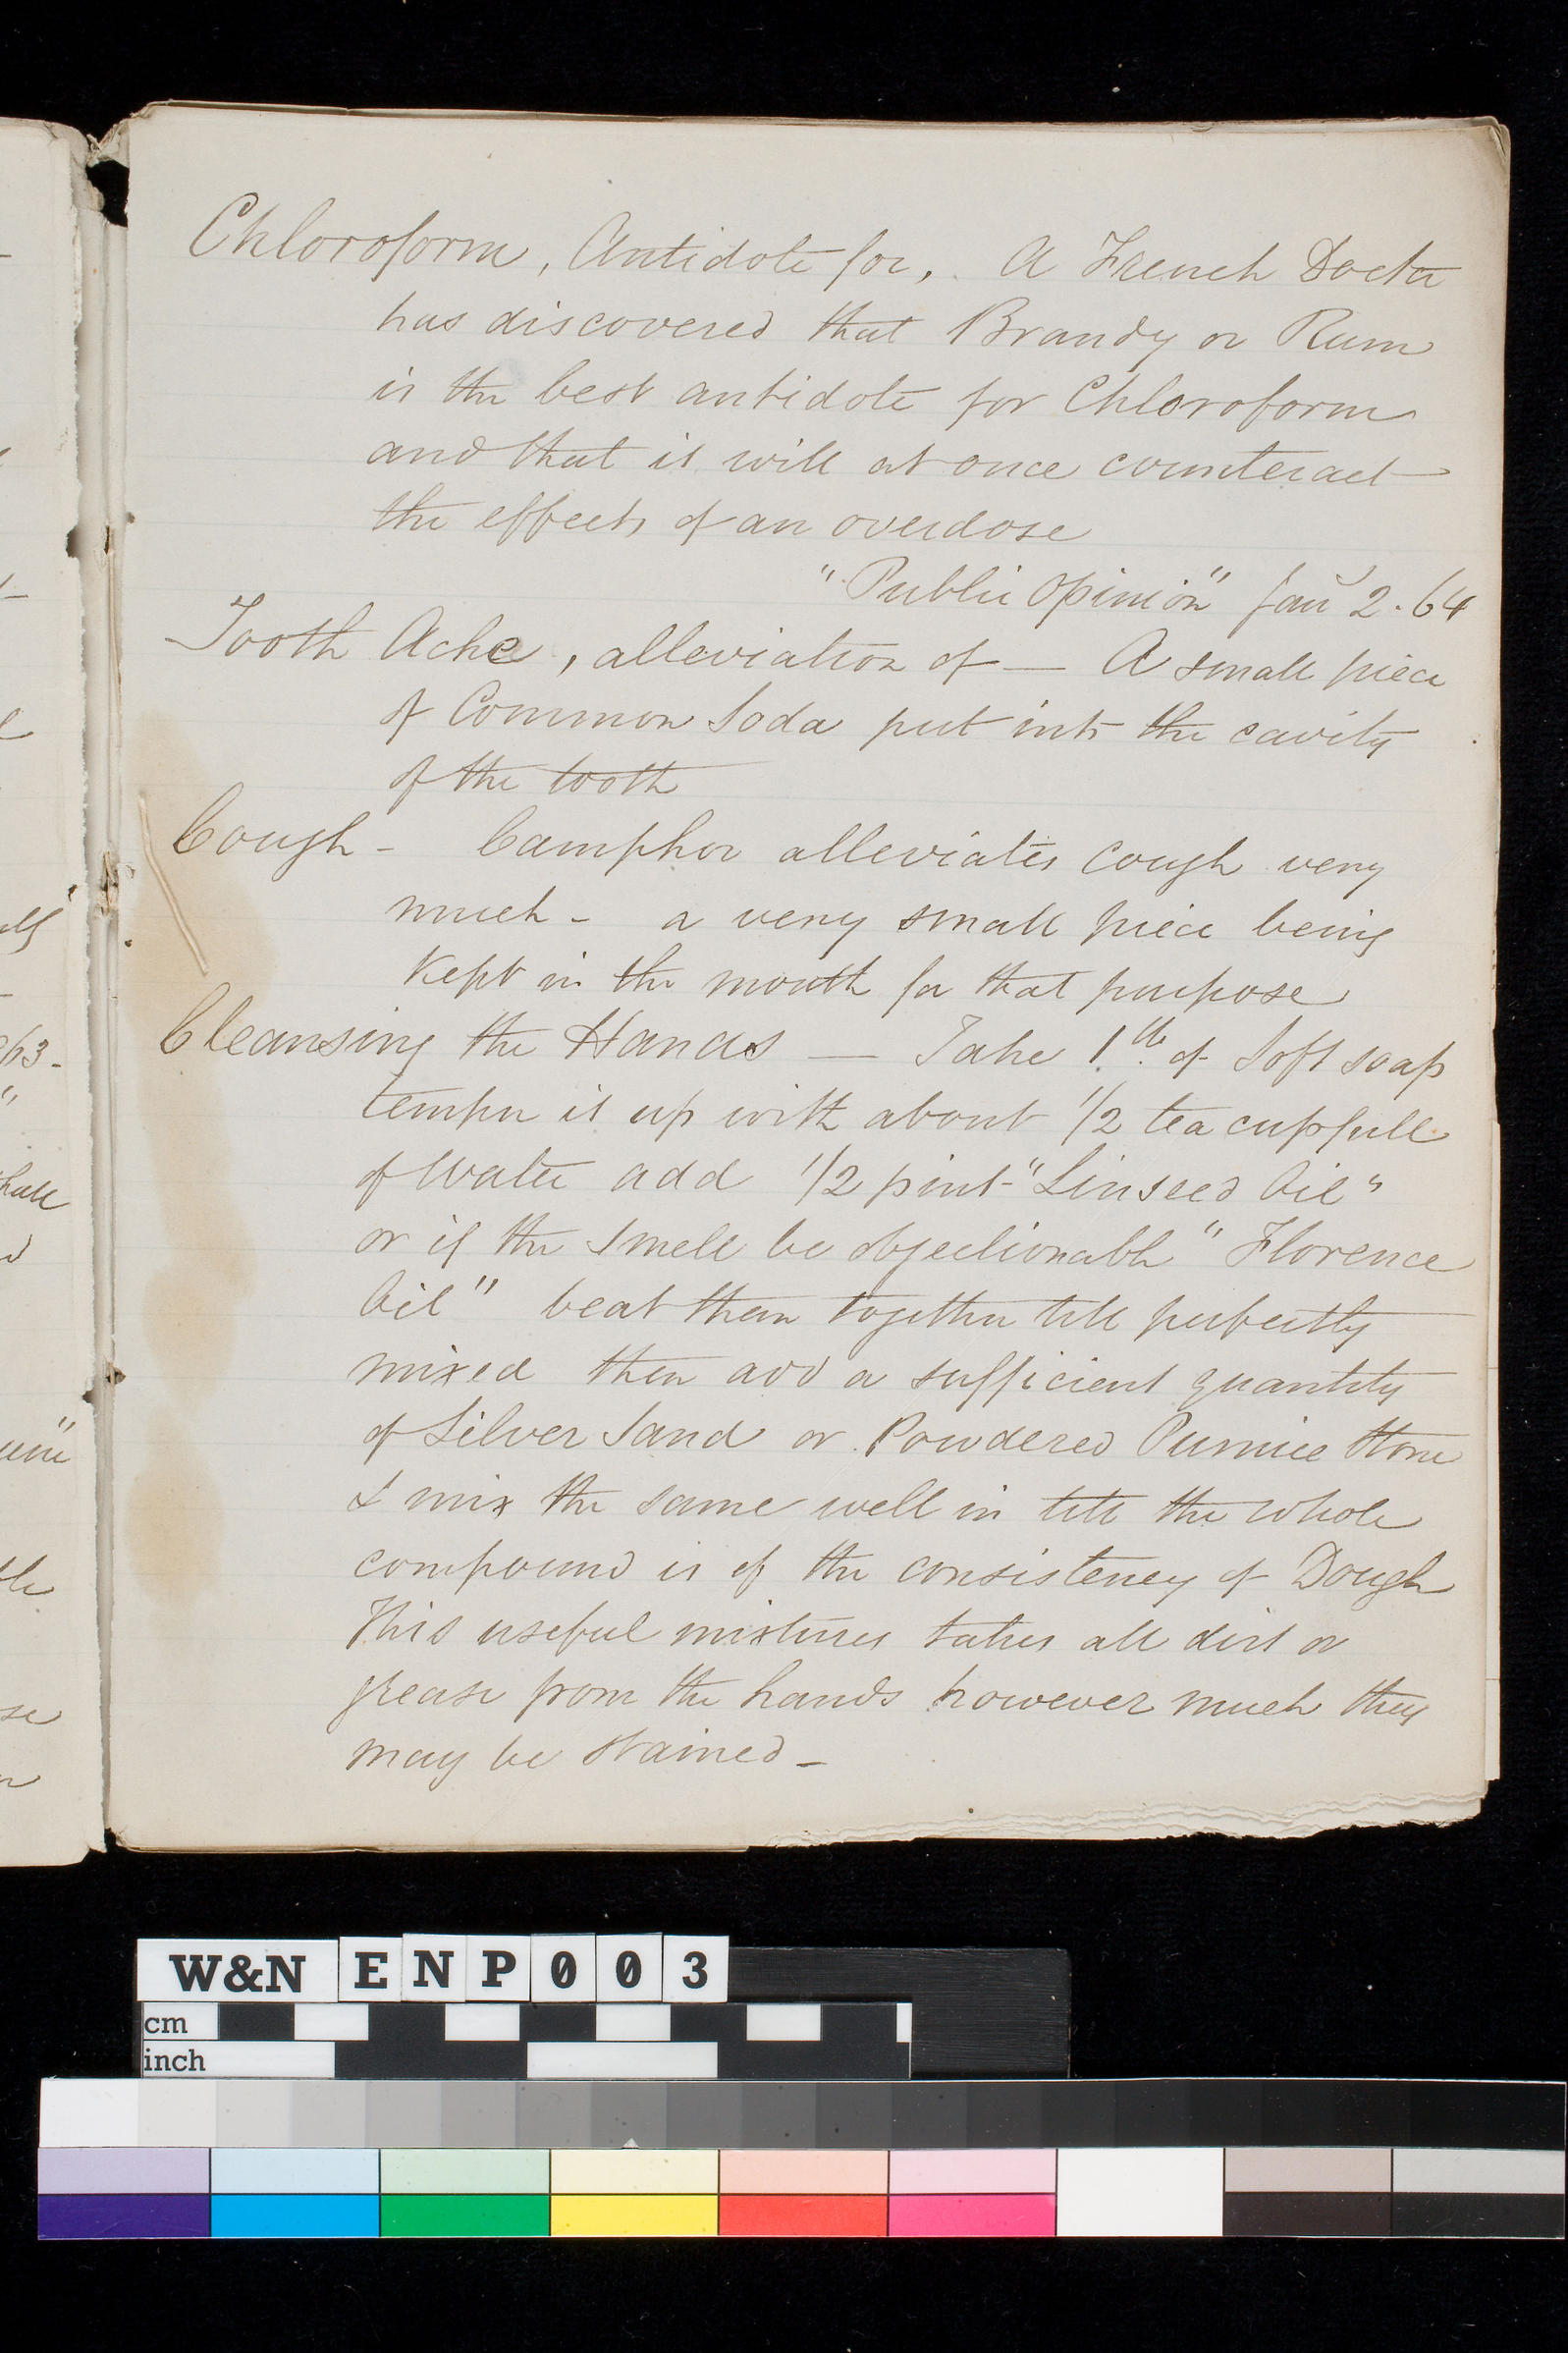 Chloroform, Antidote for, A French Doctor
has discovered that Brandy or Rum
is the best antidote for Chloroform
and that it will at once counteract
the effects of an overdose
"Public Opinion" Jany 2. 64
Tooth Ache, alleviation of — A small piece
of Common Soda put into the cavity
of the tooth
Cough - Camphor alleviates cough very
much - a very small piece being
kept in the mouth for that purpose
Cleansing the Hands — Take 1 lb. of Soft soap
temper it up with about 1/2 tea cupfull
of Water add 1/2 pint "Linseed Oil"
or if the smell be objectionable "Florence
Oil" beat them together till perfectly
mixed then add a sufficient quantity
of Silver Sand or Powdered Pumice Stone
& mix the same well in till the whole
compound is of the consistency of Dough
This useful mixture takes all dirt or
grease from the hands however much they
may be stained -
W&N ENP003
cm
inch